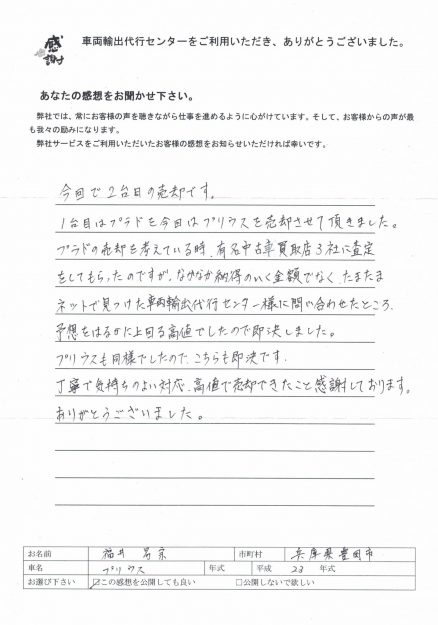 感謝
車両輸出代行センターをご利用いただき、ありがとうございました。
あなたの感想をお聞かせ下さい。
弊社では、常にお客様の声を聴きながら仕事を進めるように心がけています。そして、お客様からの声が最
も我々の励みになります。
弊社サービスをご利用いただいたお客様の感想をお知らせいただければ幸いです。
今回で2台目の売却です。
1台目はプラドを今回はプリウスを売却させて頂きました。
プラドの売却を考えている時、有名中古車買取店3社に査定
をしてもらったのですが、なかなか納得のいく金額でなく、たまたま
ネットで見つけた車両輸出代行センター様に問い合わせたところ、
予想をはるかに上回る高値でしたので即決しました。
プリウスも同様でしたので、こちらも即決です。
丁寧で気持ちのよい対応、高値で売却できたこと感謝しております。
ありがとうございました。
お名前 福井 昌宗 市町村 兵庫県豊岡市
車名 プリウス 年式 平成 23 年式
お選び下さい ☑この感想を公開しても良い □公開しないで欲しい